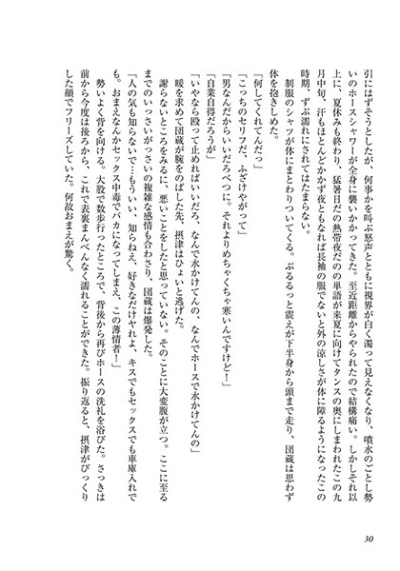 引にはずそうとしたが、何事かを叫ぶ怒声とともに視界が白く濁って見えなくなり、噴水のごとし勢
いのホースシャワーが全身に襲いかかってきた。至近距離からやられたので結構痛い。しかしそれ以
上に、夏休みも終わり、猛暑日だの熱帯夜だのの単語が来夏に向けてタンスの奥にしまわれたこの九
月中旬、汗もほとんどかかず夜ともなれば長袖の服でないと外の涼しさが体に障るようになったこの
時期、ずぶ濡れにされてはたまらない。
制服のシャツが体にまとわりついてくる。ぶるるっと震えが下半身から頭まで走り、団蔵は思わず
体を抱きしめた。
「何してくれてんだっ」
「こっちのセリフだ、ふざけやがって」
「男なんだからいいだろべつに。それよりめちゃくちゃ寒いんですけど！」
「自業自得だろうが」
「いやなら殴って止めればいいだろ、なんで水かけてんの、なんでホースで水かけてんの」
暖を求めて団蔵が腕をのばした先、摂津はひょいと逃げた。
謝らないところをみるに、悪いことをしたと思っていない。そのことに大変腹が立つ。ここに至る
までのいっさいがっさいの複雑な感情も合わさり、団蔵は爆発した。
「人の気も知らないで…もういい、知らねえ、好きなだけヤれよ、キスでもセックスでも車庫入れで
も。おまえなんかセックス中毒でバカになってしまえ、この薄情者！」
勢いよく背を向ける。大股で数歩行ったところで、背後から再びホースの洗礼を浴びた。さっきは
前から今度は後ろから、これで表裏まんべんなく濡れることができた。振り返ると、摂津がびっくり
した顔でフリーズしていた。何故おまえが驚く。
30